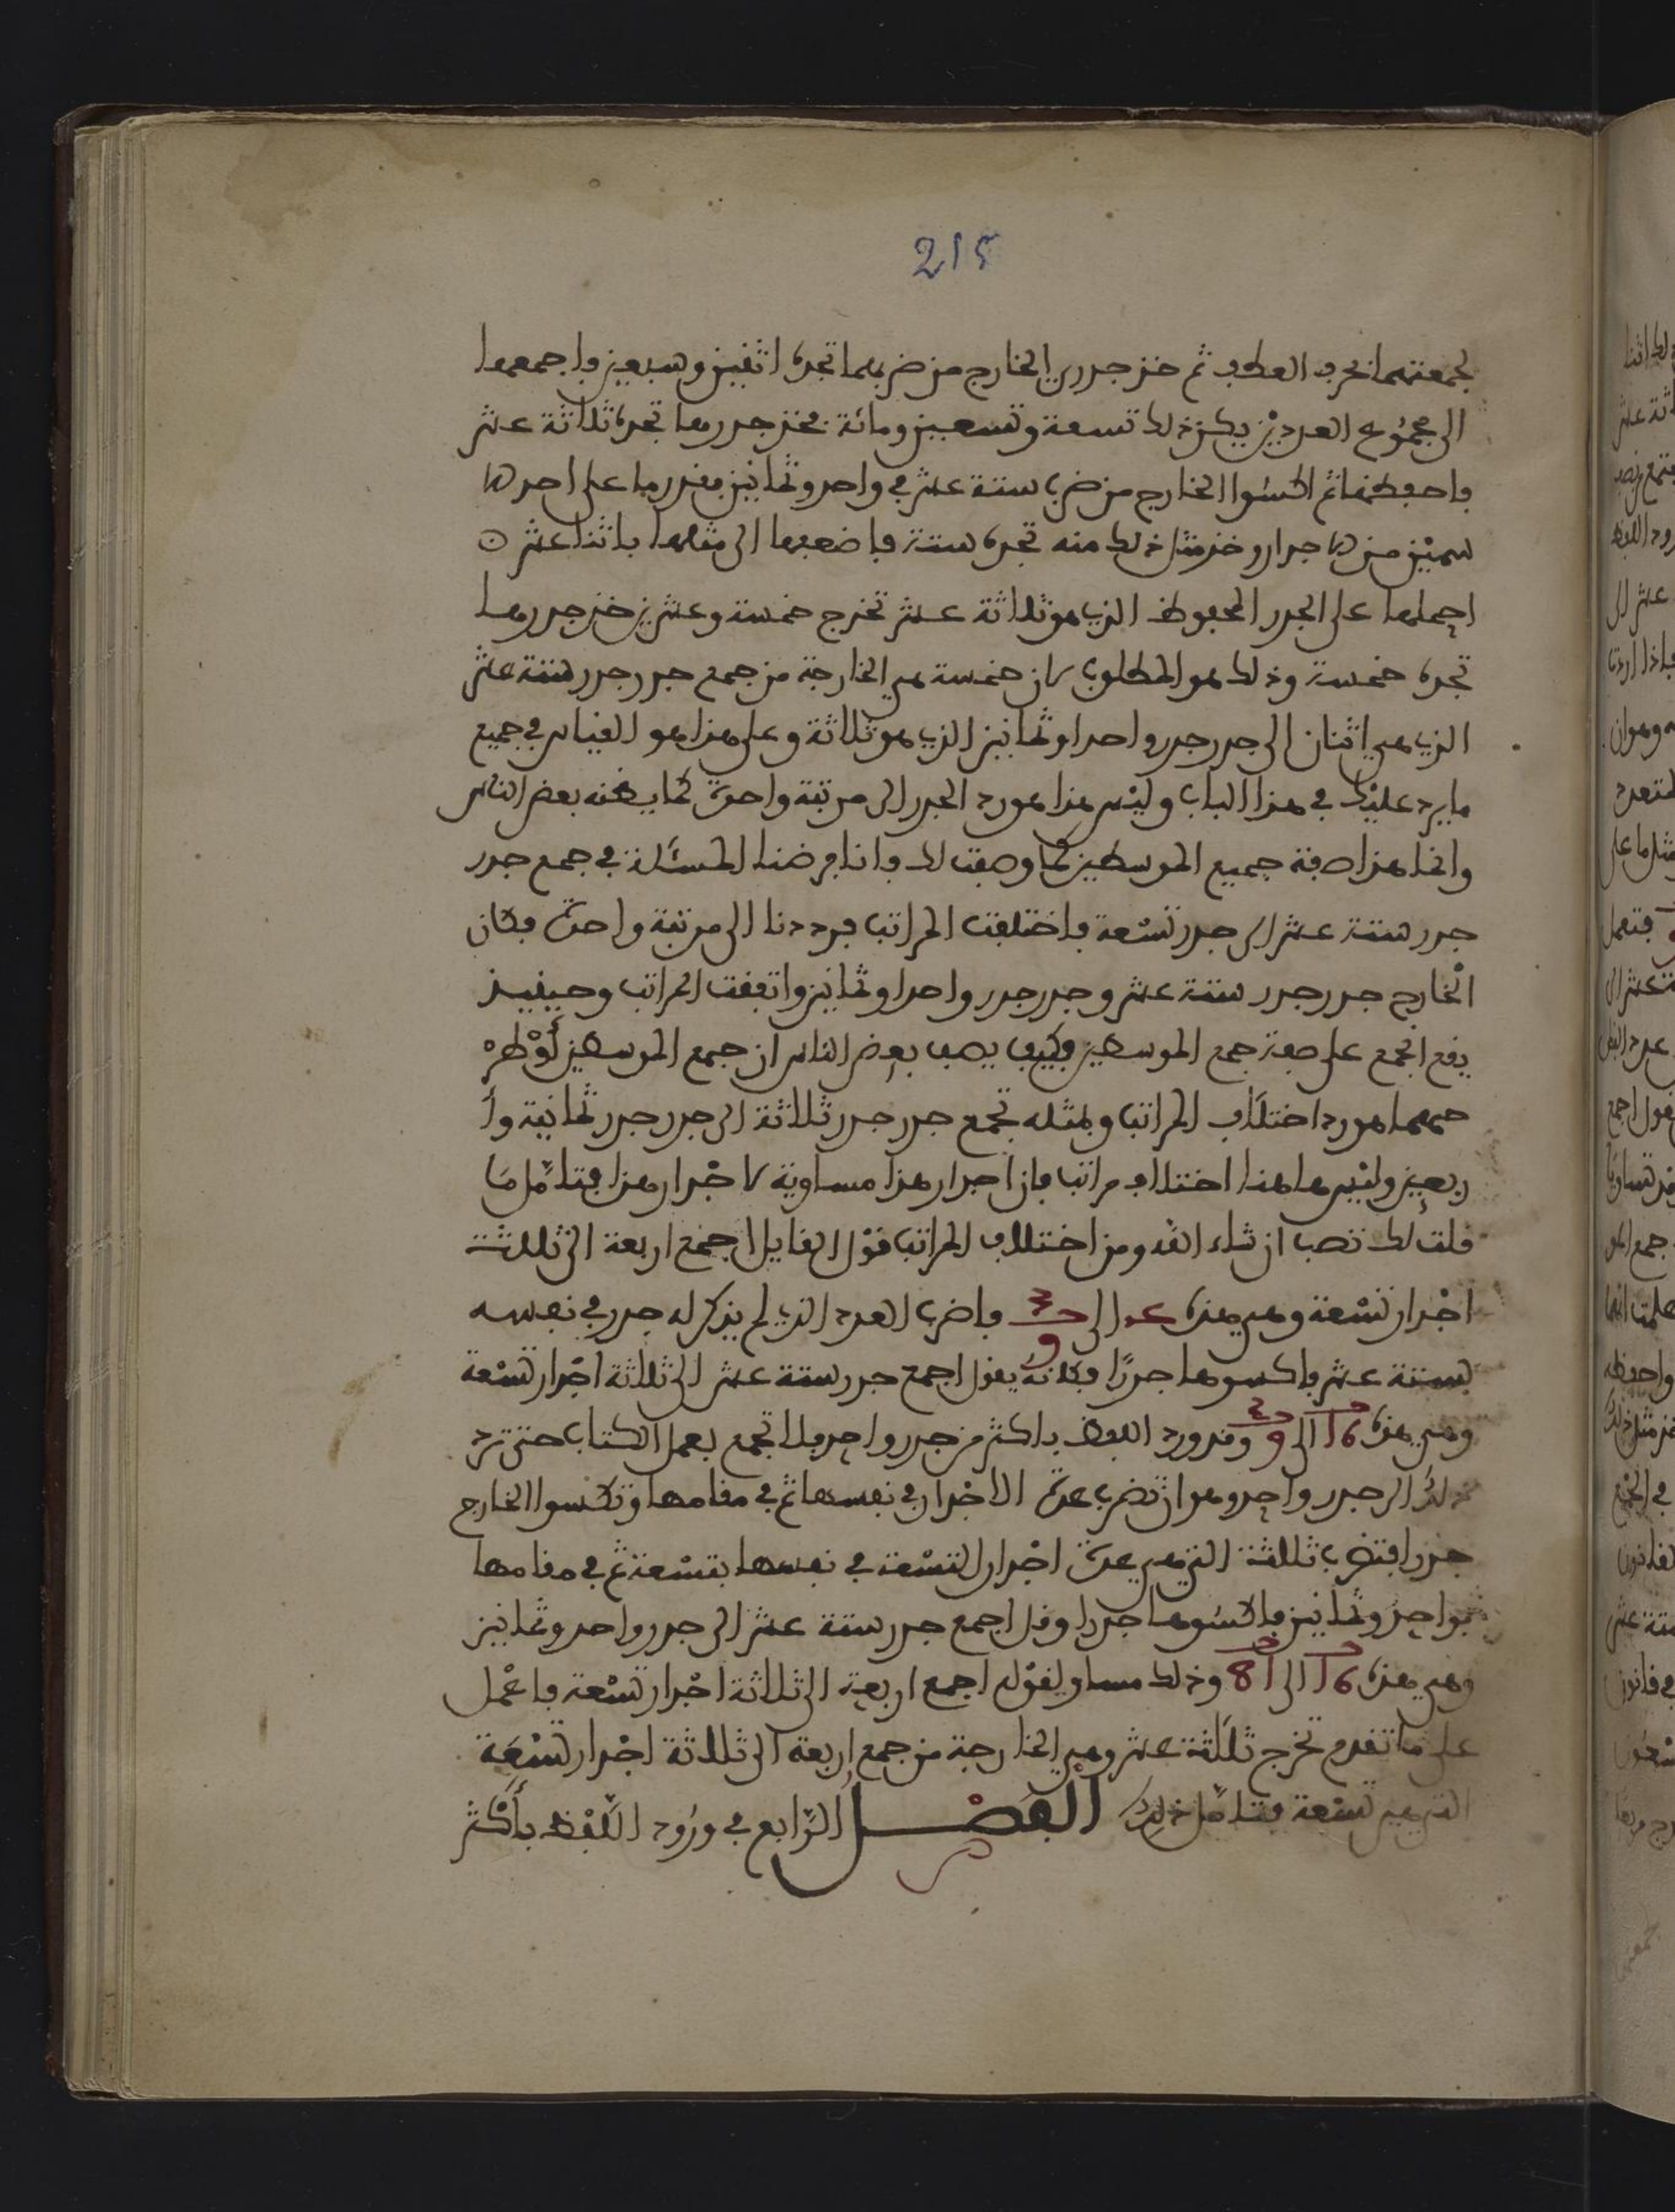 215
لجمعتهما بحرف العطف ثم خذ جدري الخارج من ضربهما تجده اثنين وسبعين فاجمعها
الى مجموع العددين يكن ذلك تسعة وستين ومائة فخذ جدرها تجده ثلاثة عشر
فاحفظها ثم اكسوا الخارج من ضرب ستة عشر في واحد وثمانين
اجدار وخذ مثل ذلك منه تجده ستة فاضعفها الى مثلها باثنا عشر
احملها على الجدر المحفوظ الذي هو ثلاثة عشر تخرج خمسة وعشرين خذ جدرها
تجده خمسة وذلك هو المطلوب لان خمسة هي الخارجة من جمع جدر جدر ستة عشر
الذي هي اثنان الى جدر جدر واحدا وثمانين الذي هو ثلاثة وعلى هذا هو القياس في جميع
ما يرد عليك في هذا الباب وليس هذا هو رد الجدر الى مرتبة واحدة كما يظنه بعض الناس
وانما هذا صفة جميع الموسطين كما وصفت لك فانا فرضنا المسئلة في جمع جدر
جدر ستة عشر الى جدر تسعة فاختلفت المراتب فرددنا الى مرتبة واحدة فكان
الخارج جدر جدر ستة عشر وجدر جدر واحدا وثمانين واتفقت المراتب وحينيذ
يقع الجمع على صفة جمع الموسطين فكيف يصف بعض الناس ان جمع الموسطين
جمعهما هو رد اختلاف المراتب وبمثله تجمع جدر جدر ثلاثة الى جدر جدر ثمانية وأ
ربعين وليس هاهنا اختلاف مراتب فان اجدار هذا مساوية لاجدار هذا فتأمل ما
قلت لك تصب ان شاء الله ومن اختلاف المراتب قول القايل اجمع اربعة الى ثلاثة
اجدار تسعة وهي هذه الى 9 فاضرب العدد الذي لم يذكر له جدر في نفسه
بستة عشر فاكسوها جدرًا فكانه يقول اجمع جدر ستة عشر الى ثلاثة اجدار تسعة
وهي هذه 16 الى 9 وقد ورد اللفظ باكثر من جدر واحد فلا تجمع بعمل الكتاب حتى ترد
ذلك الى جدر واحد وهو ان تضرب عدة الاجدار في نفسها ثم في مقامها وتكسوا الخارج
جدرا فتضرب ثلاثة التي هي عدة اجدار التسعة في نفسها بتسعة ثم في مقامها
بواحد وثمانين فاكسوها جدرا وقل اجمع جدر ستة عشر الى جدر واحد وثمانين
وهي هذه 16 الى 81 وذلك مساو لقوله اجمع اربعة الى ثلاثة اجدار تسعة فاعمل
على ما تقدم تخرج ثلاثة عشر وهي الخارجة من جمع اربعة الى ثلاثة اجدار تسعة
التي هي تسعة فتأمل ذلك الفصل الرابع في ورود اللفظ بأكثر